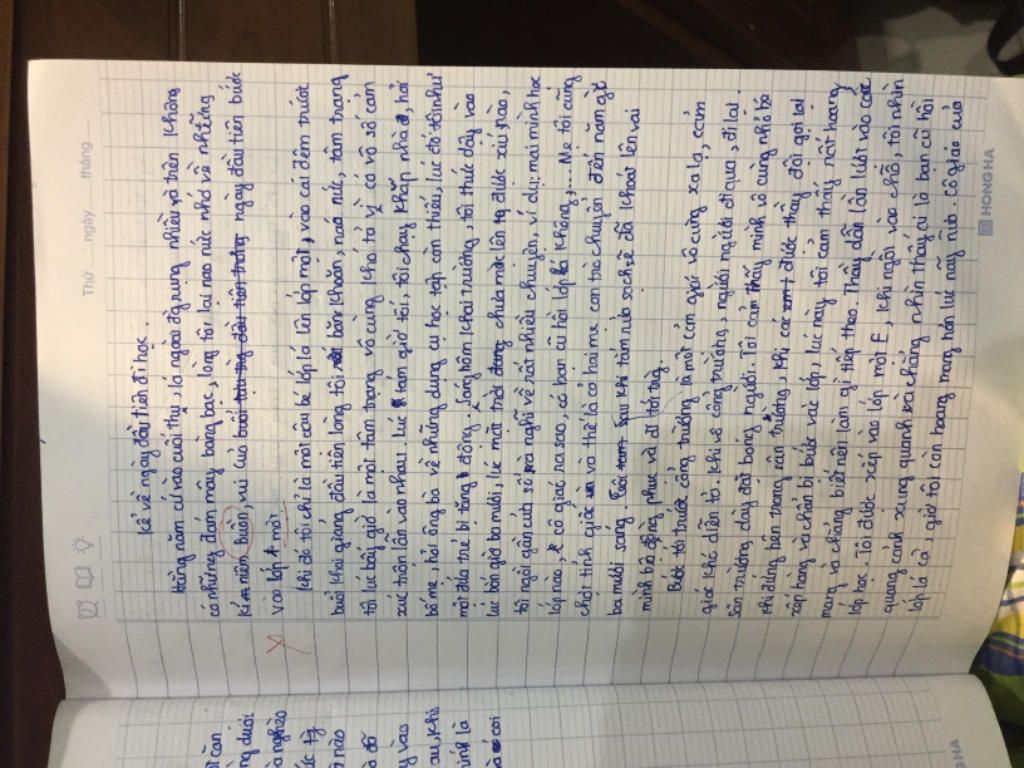 Thứ ngày tháng
Kể về ngày đầu tiên đi học.
Hằng năm cứ vào cuối thu, lá ngoài đường rụng nhiều và trên không
có những đám mây bàng bạc, lòng tôi lại nao nức nhớ về những
kỉ niệm buồn, vui của buổi ngày đầu tiên bước
vào lớp một.
Khi đó tôi chỉ là một cậu bé lớp lá lên lớp một, vào cái đêm trước
buổi khai giảng đầu tiên lòng tôi băn khoăn, naó nức, tâm trạng
tôi lúc bấy giờ là một tâm trạng vô cùng khó tả vì có vô số cảm
xúc trộn lẫn vào nhau. Lúc tám giờ tối, tôi chạy khắp nhà, hỏi
bố mẹ, hỏi ông bà về những dụng cụ học tập còn thiếu, lúc đó tôi như
một đứa trẻ bị tăng động. Sáng hôm khai trường, tôi thức dậy vào
lúc bốn giờ ba mươi, lúc mặt trời chưa mọc lên được xíu nào,
tôi ngồi gần cửa sổ nghĩ về rất nhiều chuyện, ví dụ: mai mình học
lớp nào, cô giáo ra sao, có bạn cũ hồi lớp lá không,... Mẹ tôi cũng
chợt tỉnh giấc và thế là cả hai mẹ con trò chuyện đến năm giờ
ba mươi sáng. Sau khi tắm rửa sạch sẽ đã khoác lên vai
mình bộ đồng phục và đi tới trường.
Bước tới trước cổng trường là một cảm giác vô cùng xa lạ, cảm
giác khó diễn tả. Khi vô cổng trường, người người đi qua, đi lại.
Sân trường dày đặt bóng người. Tôi cảm thấy mình vô cùng nhỏ bé
khi đứng bên trong sân trường, khi các được thầy đội gọi lại
xếp hàng và chuẩn bị bước vào lớp, lúc này tôi cảm thấy rất hoang
mang và chẳng biết nên làm gì tiếp theo. Thầy dẫn lần lượt vào các
lớp học. Tôi được xếp vào lớp một F, khi ngồi vào chỗ, tôi nhìn
quang cảnh xung quanh và chẳng nhìn thấy cứ là bạn cũ hồi
lớp lá cả, giờ tôi còn hoang mang hơn lúc nãy nữa. Cô giáo của
HONG HA